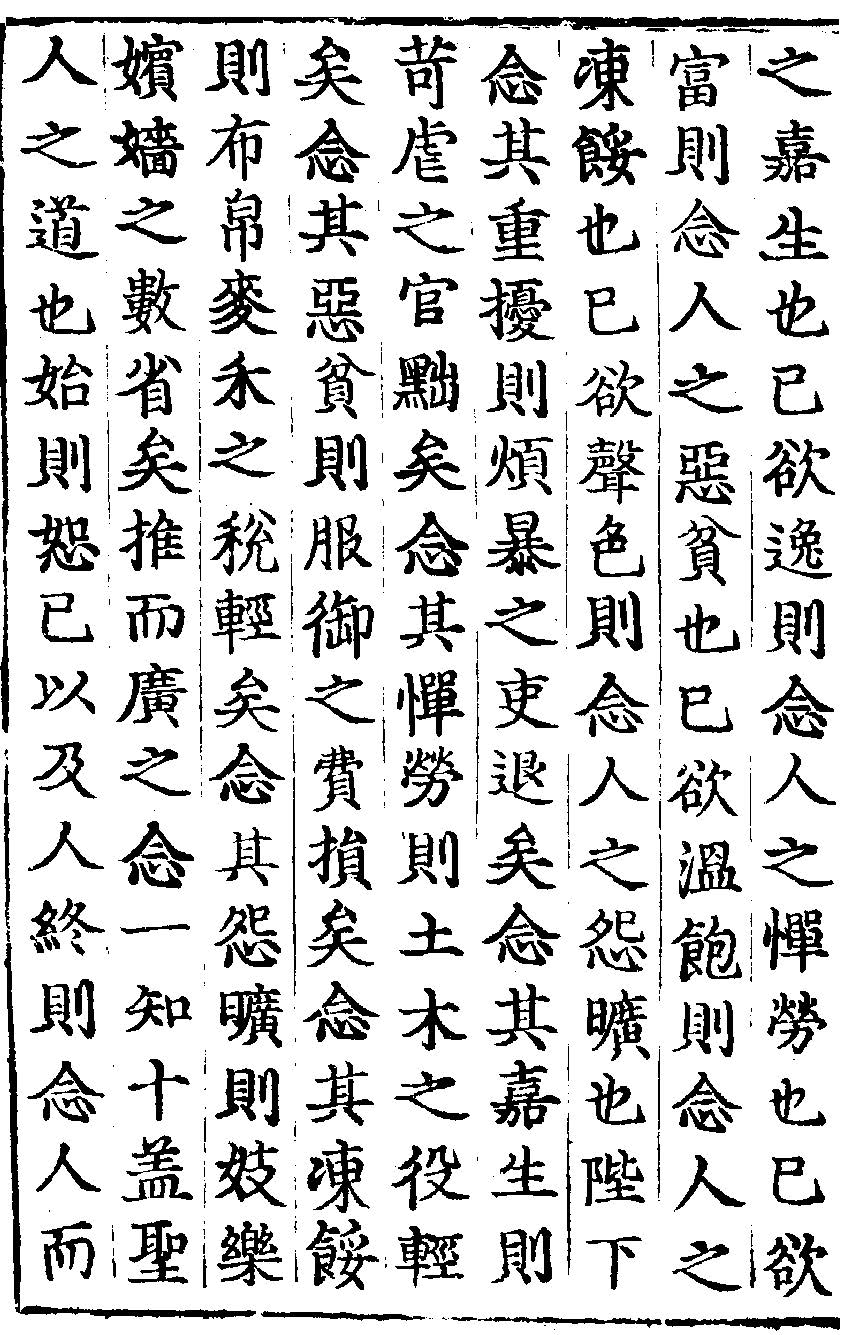 之嘉生也已欲逸則念人之憚勞也已欲
富則念人之惡貧也已欲溫飽則念人之
凍餒也已欲聲色則念人之怨曠也陛下
念其重擾則煩暴之吏退矣念其嘉生則
苛虐之官黜矣念其憚勞則土木之役輕
矣念其惡貧則服御之費損矣念其凍餒
則布帛麥禾之稅輕矣念其怨曠則妓樂
嬪嬙之數省矣推而廣之念一知十盖聖
人之道也始則恕已以及人終則念人而